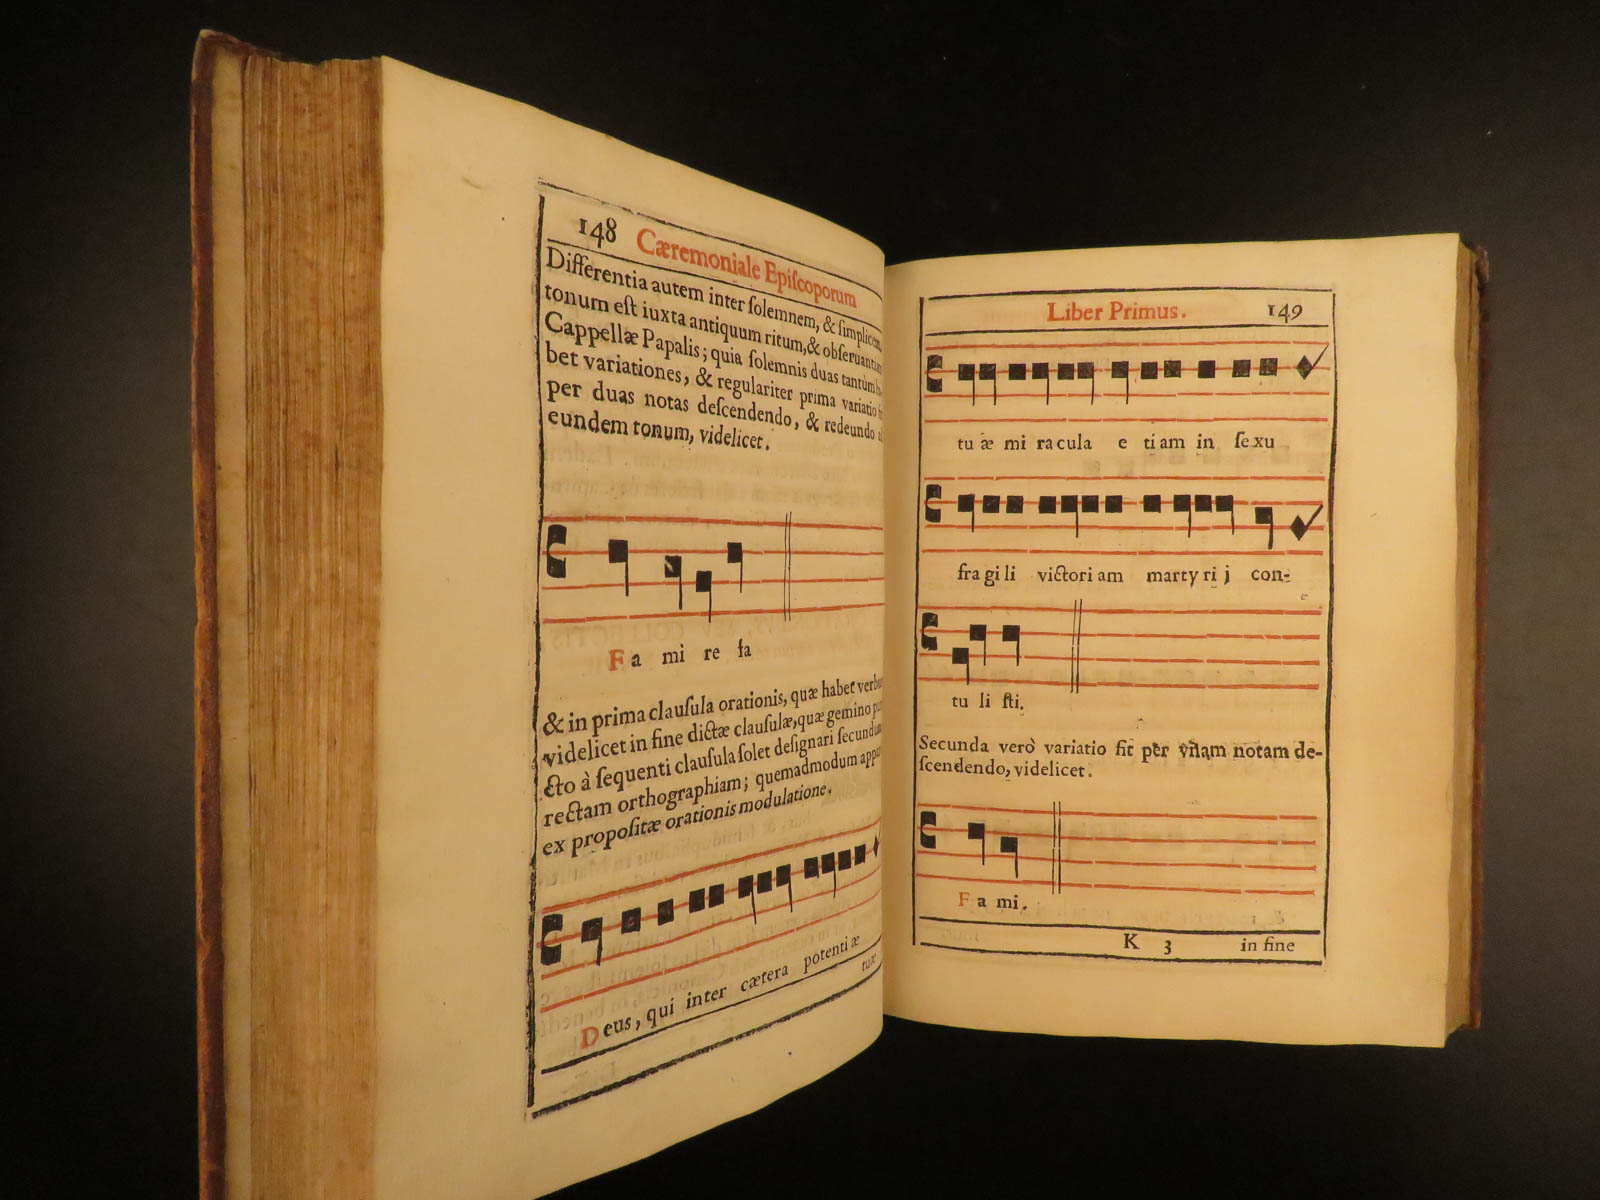 148 Cæremoniale Epiſcoporum
Differentia autem inter ſolemnem, & ſimplicem
tonum eſt iuxta antiquum ritum, & obſeruantiam
Cappellæ Papalis; quia ſolemnis duas tantùm
bet variationes, & regulariter prima variatio
per duas notas deſcendendo, & redeundo
eundem tonum, videlicet.
Fa mi re fa
& in prima clauſula orationis, quæ habet
videlicet in fine dictæ clauſulæ, quæ gemino
cto à ſequenti clauſula ſolet deſignari ſecundum
rectam orthographiam; quemadmodum
ex propoſitæ orationis modulatione.
Deus, qui inter cætera potenti æ
tuæ
Liber Primus. 149
tu æ mi racula e tiam in ſexu
fra gi li victori am marty ri j con-
tu li ſti.
Secunda verò variatio fit per vnam notam de-
ſcendendo, videlicet.
Fa mi.
K 3 in fine